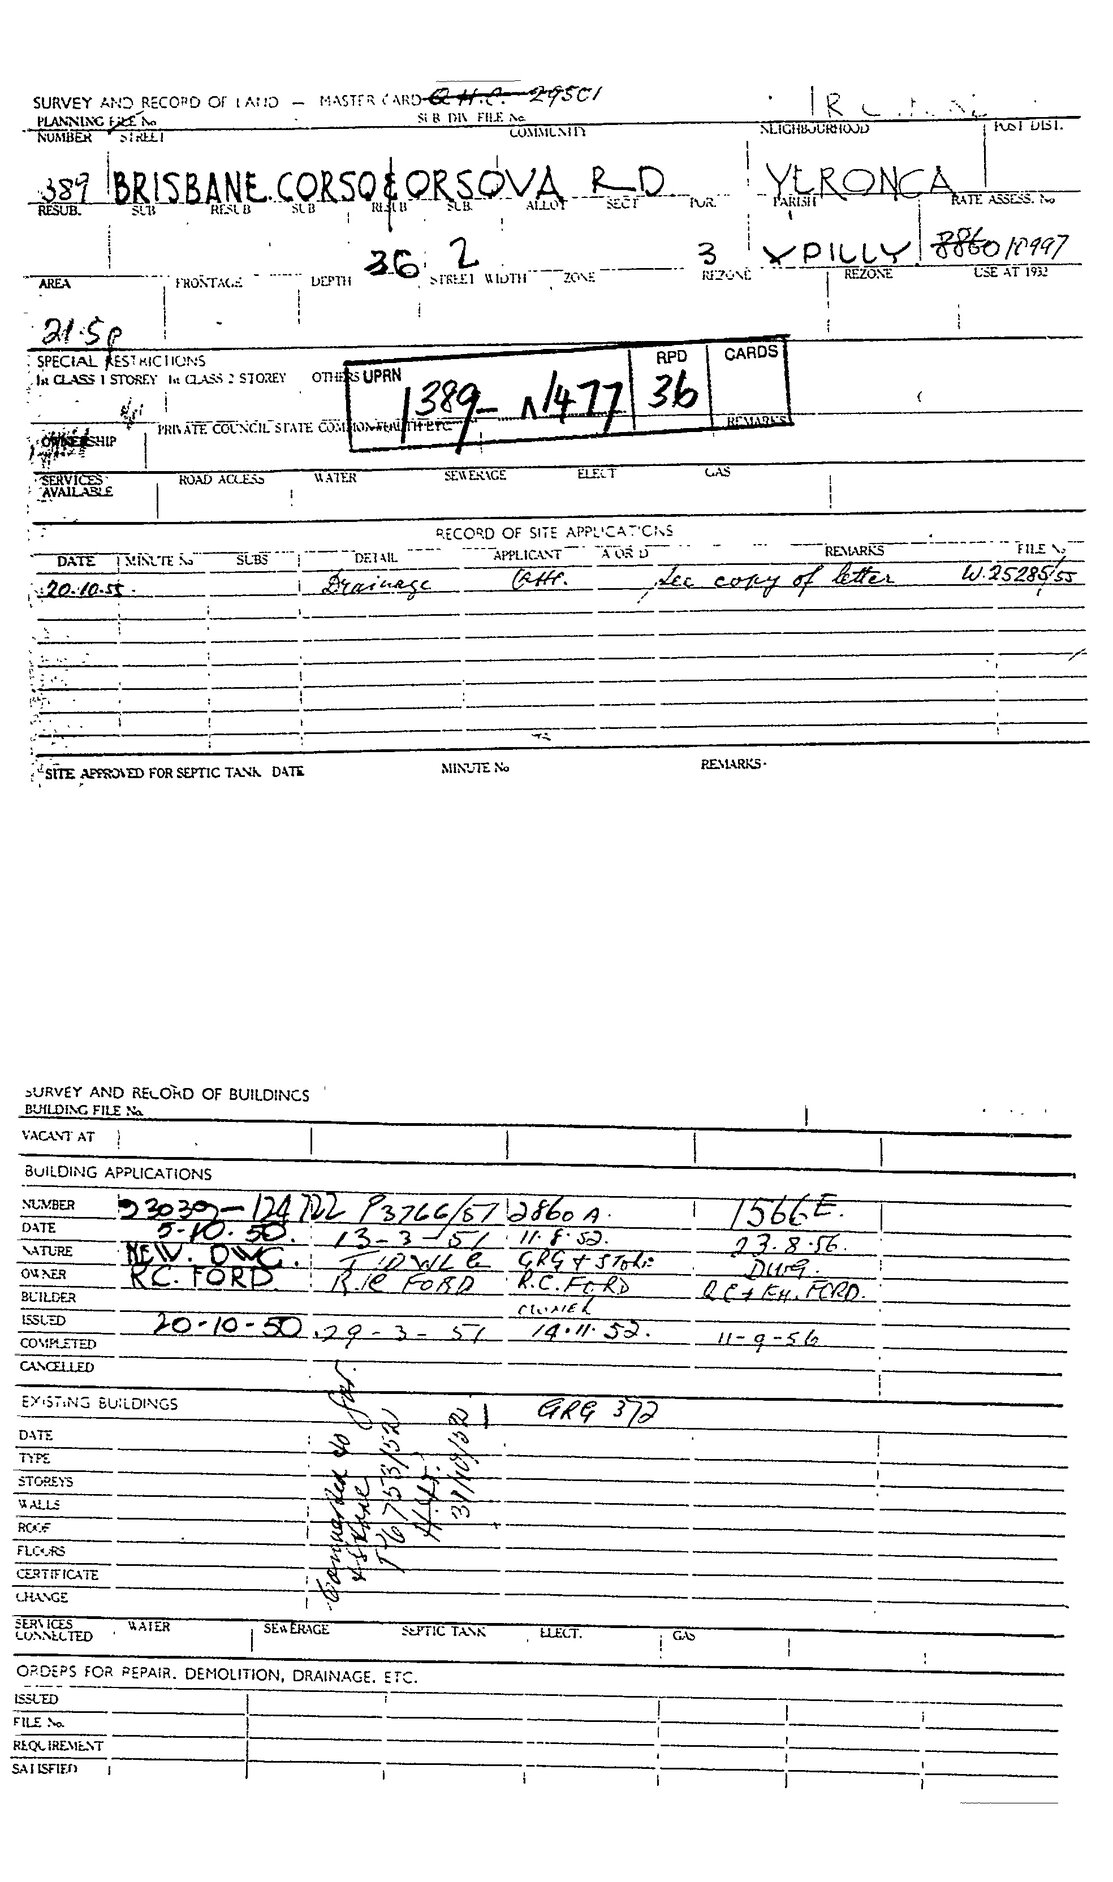 SURVEY AND RECORD OF LAND — MASTER CARD Q.H.C. 29501
PLANNING FILE No SUB DIV. FILE No.
NUMBER STREET COMMUNITY NEIGHBOURHOOD POST DIST.
389 BRISBANE CORSO & ORSOVA RD YERONGA
RESUB. SUB RESUB SUB RESUB SUB. ALLOT SECT POR. PARISH RATE ASSESS. No
36 2 3 Y PILLY 8860 18997
AREA FRONTAGE DEPTH STREET WIDTH ZONE REZONE REZONE USE AT 1932
21.5p
SPECIAL RESTRICTIONS
1st CLASS 1 STOREY 1st CLASS 2 STOREY OTHERS UPRN RPD CARDS
1389- 1477 36
OWNERSHIP PRIVATE COUNCIL STATE COMMONWEALTH ETC REMARKS
SERVICES AVAILABLE ROAD ACCESS WATER SEWERAGE ELECT GAS
RECORD OF SITE APPLICATIONS
DATE MINUTE No SUBS DETAIL APPLICANT A OR D REMARKS FILE No
20.10.55. Drainage QHC. See copy of letter W.25285/55
SITE APPROVED FOR SEPTIC TANK DATE MINUTE No REMARKS
SURVEY AND RECORD OF BUILDINGS
BUILDING FILE No.
VACANT AT
BUILDING APPLICATIONS
NUMBER 93039-124722 P3766/51 2860 A. 1566E.
DATE 5-10.50. 13-3-51 11.8.52. 23.8.56.
NATURE NEW. DWG. T/DWLG GRG + STORE DWG.
OWNER R.C. FORD R.C FORD R.C. FORD R.C + E.H. FORD.
BUILDER OWNER
ISSUED 20-10-50 29-3-51 14.11.52. 11-9-56
COMPLETED
CANCELLED
EXISTING BUILDINGS GRG 372
DATE
TYPE
STOREYS
WALLS
ROOF
FLOORS
CERTIFICATE
CHANGE
Converted to Gar.
& Store
P6753/52
31/10/52
SERVICES CONNECTED WATER SEWERAGE SEPTIC TANK ELECT. GAS
ORDERS FOR REPAIR. DEMOLITION, DRAINAGE. ETC.
ISSUED
FILE No.
REQUIREMENT
SATISFIED